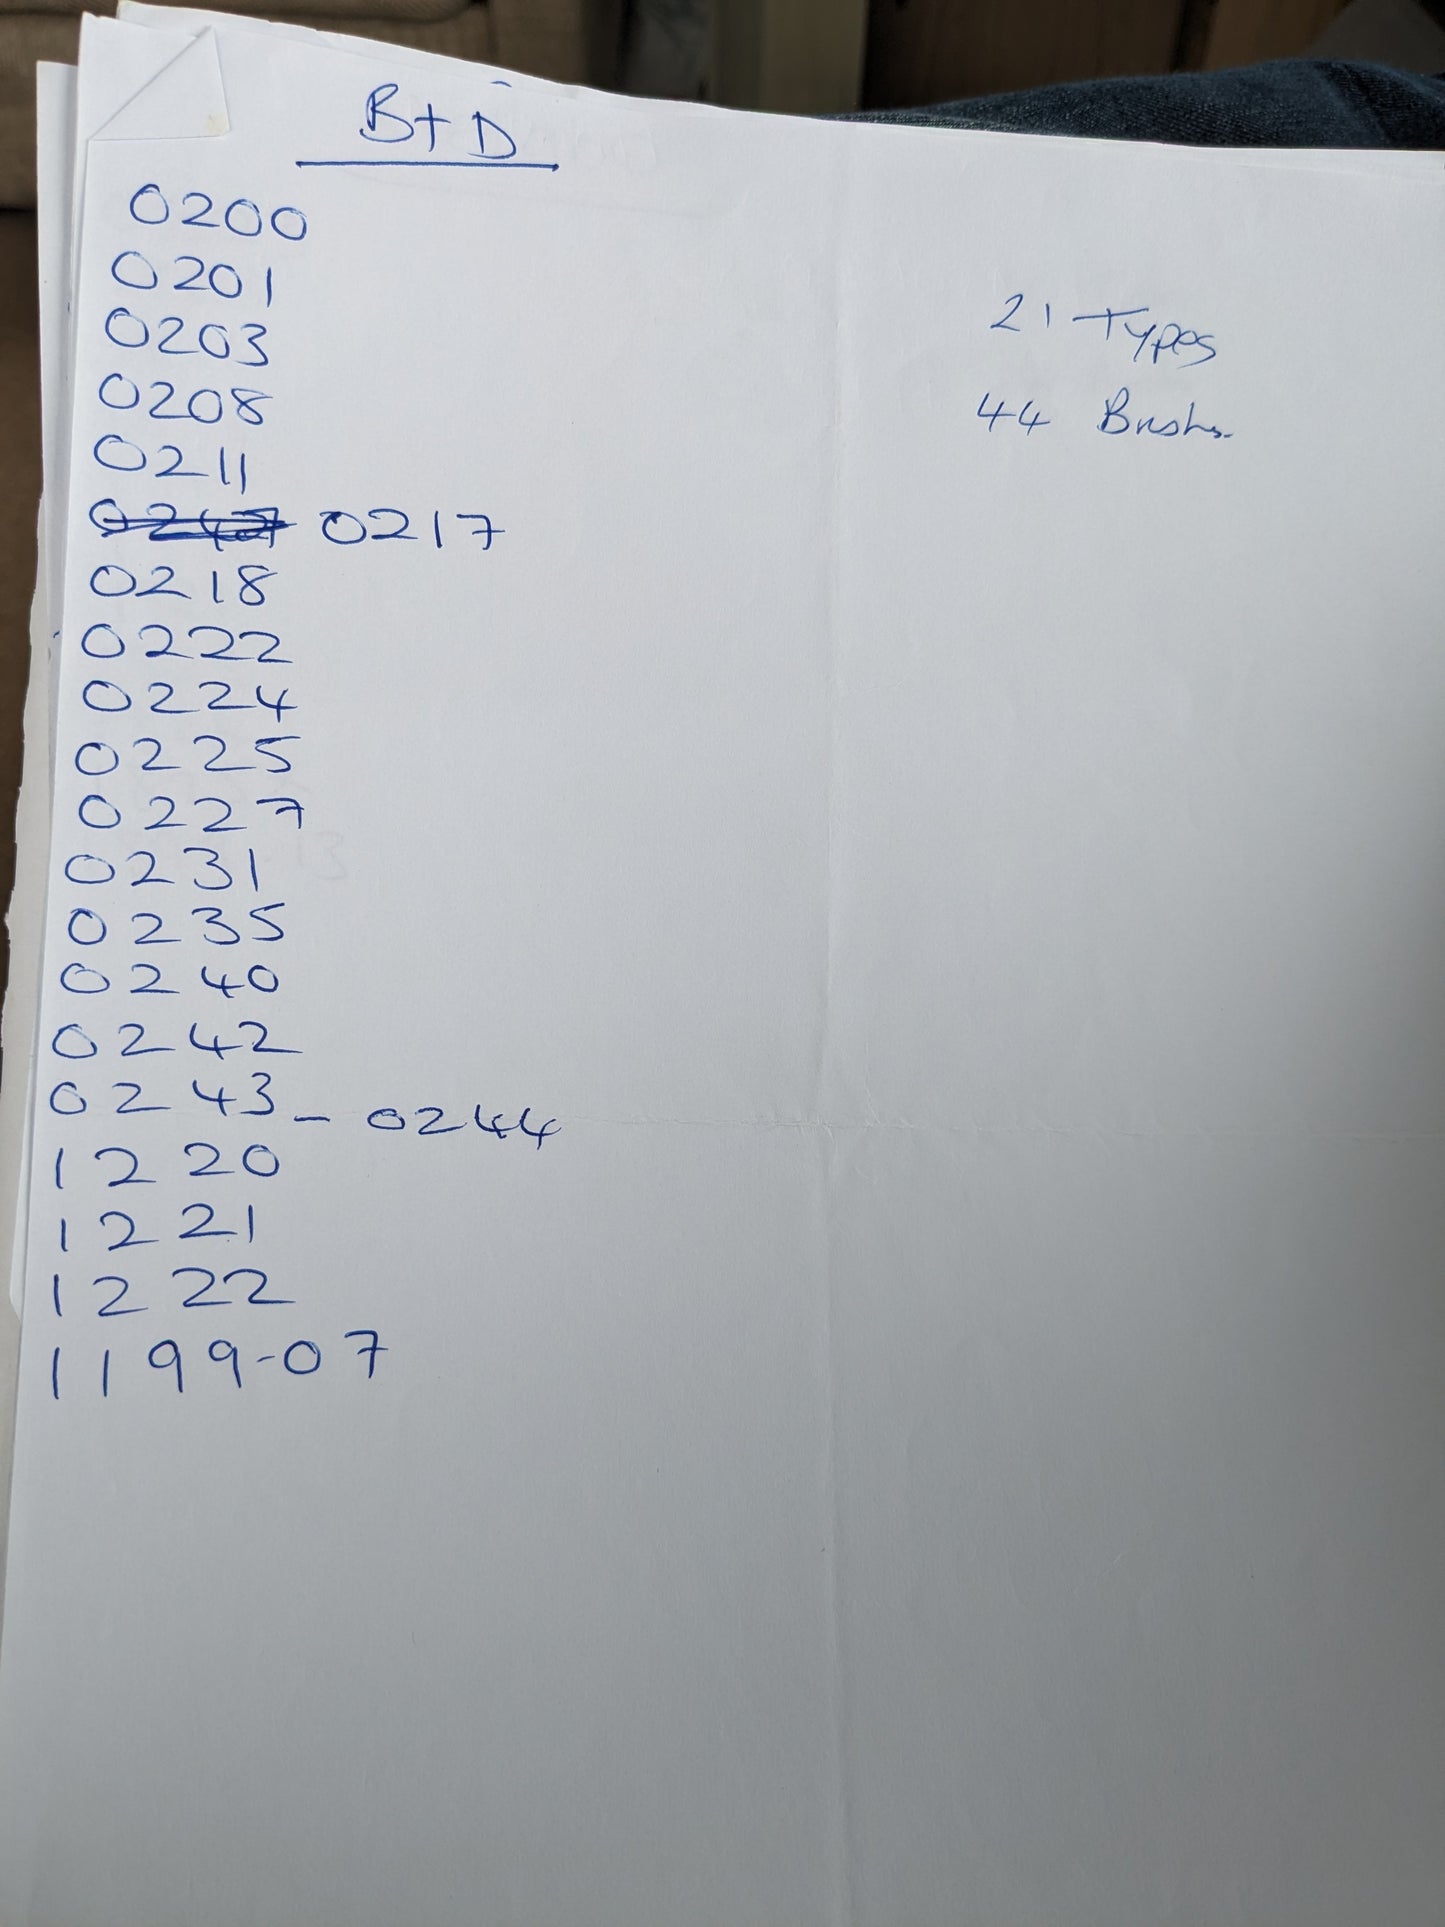 B+D
0200
0201
0203
0208
0211
0217
0218
0222
0224
0225
0227
0231
0235
0240
0242
0243 - 0244
1220
1221
1222
1199-07
21 Types
44 Brushes